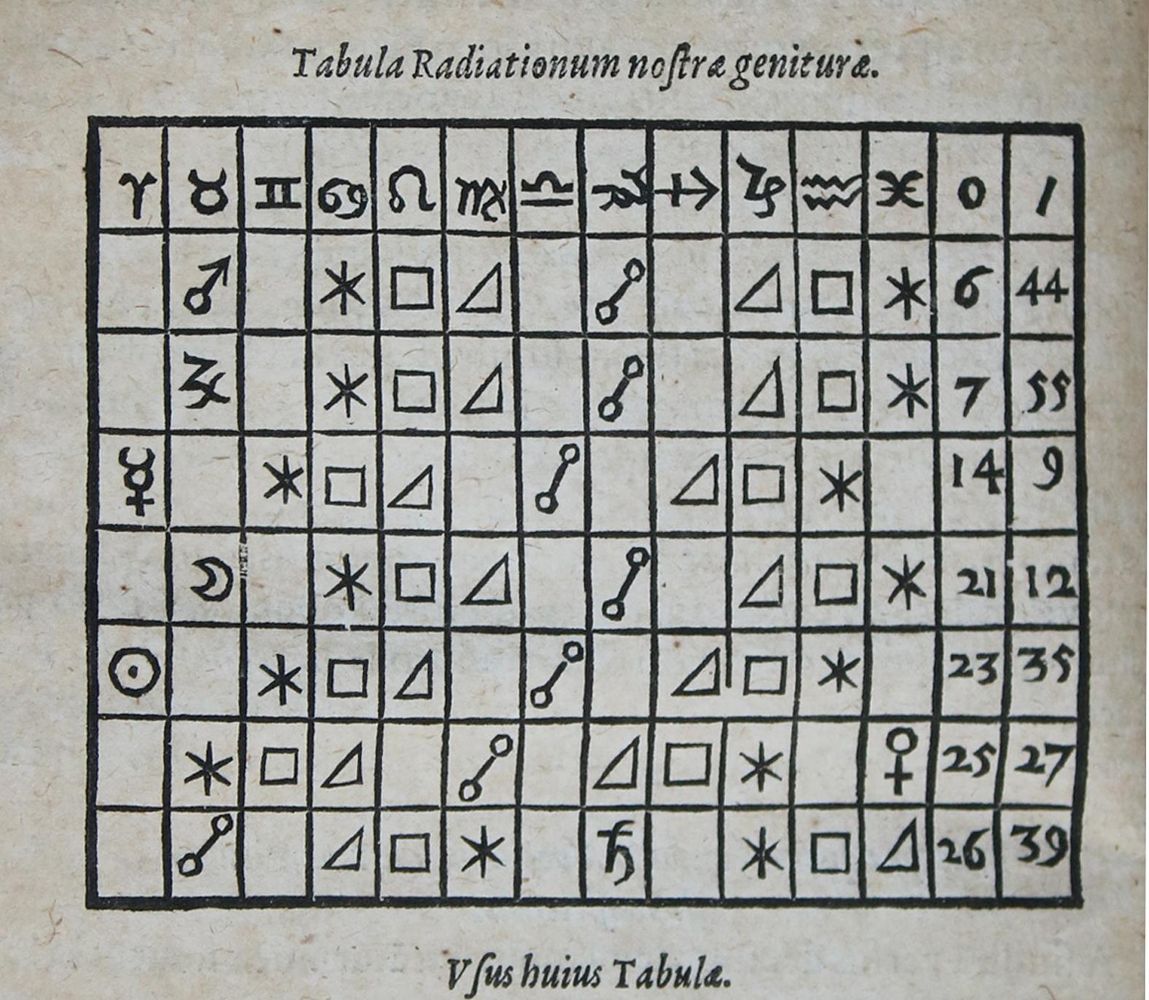 Tabula Radiationum noſtræ genituræ.
♈ ♉ ♊ ♋ ♌ ♍ ♎ ♏ ♐ ♑ ♒ ♓ 0 1
♂ ⚹ □ △ ☍ △ □ ⚹ 6 44
♃ ⚹ □ △ ☍ △ □ ⚹ 7 55
☿ ⚹ □ △ ☍ △ □ ⚹ 14 9
☽ ⚹ □ △ ☍ △ □ ⚹ 21 12
☉ ⚹ □ △ ☍ △ □ ⚹ 23 35
⚹ □ △ ☍ △ □ ⚹ ♀ 25 27
☍ △ □ ⚹ ♄ ⚹ □ △ 26 39
Vſus huius Tabulæ.